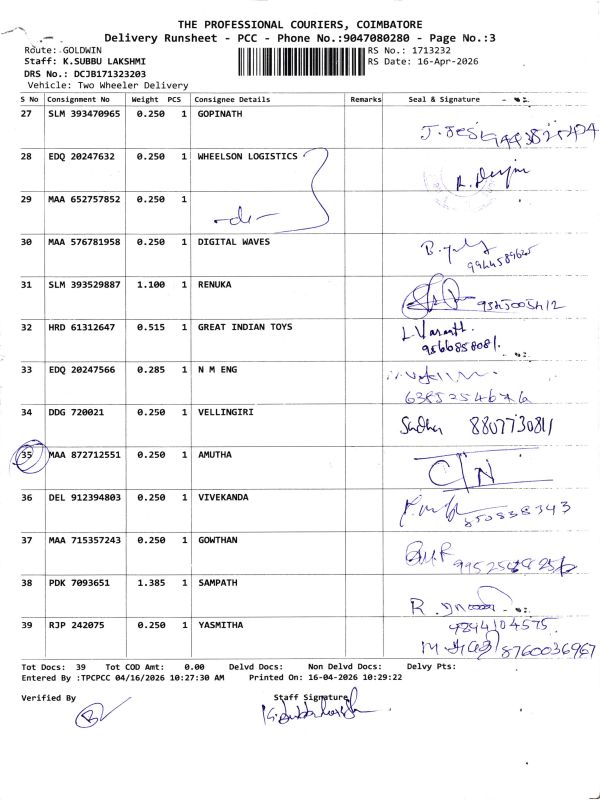 THE PROFESSIONAL COURIERS, COIMBATORE
Delivery Runsheet - PCC - Phone No.:9047080280 - Page No.:3
Route: GOLDWIN RS No.: 1713232
Staff: K.SUBBU LAKSHMI RS Date: 16-Apr-2026
DRS No.: DCJB171323203
Vehicle: Two Wheeler Delivery
S No Consignment No Weight PCS Consignee Details Remarks Seal & Signature
27 SLM 393470965 0.250 1 GOPINATH
28 EDQ 20247632 0.250 1 WHEELSON LOGISTICS
29 MAA 652757852 0.250 1 -do-
30 MAA 576781958 0.250 1 DIGITAL WAVES
31 SLM 393529887 1.100 1 RENUKA
32 HRD 61312647 0.515 1 GREAT INDIAN TOYS
9566858081.
33 EDQ 20247566 0.285 1 N M ENG
34 DDG 720021 0.250 1 VELLINGIRI 8807730811
35 MAA 872712551 0.250 1 AMUTHA
36 DEL 912394803 0.250 1 VIVEKANDA
37 MAA 715357243 0.250 1 GOWTHAN
38 PDK 7093651 1.385 1 SAMPATH R.
39 RJP 242075 0.250 1 YASMITHA
8760036967
Tot Docs: 39 Tot COD Amt: 0.00 Delvd Docs: Non Delvd Docs: Delvy Pts:
Entered By :TPCPCC 04/16/2026 10:27:30 AM Printed On: 16-04-2026 10:29:22
Verified By Staff Signature